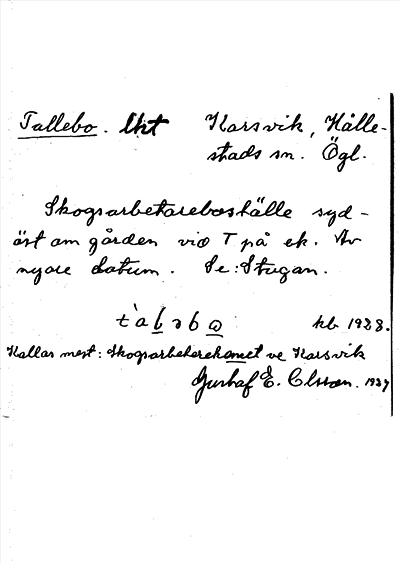 Tallebo. lht Karsvik, Hälle-
stads sn. Ögl.
Skogsarbetareboställe syd-
öst om gården vid T på ek. Av
nyare datum. Se: Stugan.
t`a l ə b ω kb 1933.
Kallas mest: Skogsarbetarehemet ve Karsvik
Gustaf E. Olsson. 1937